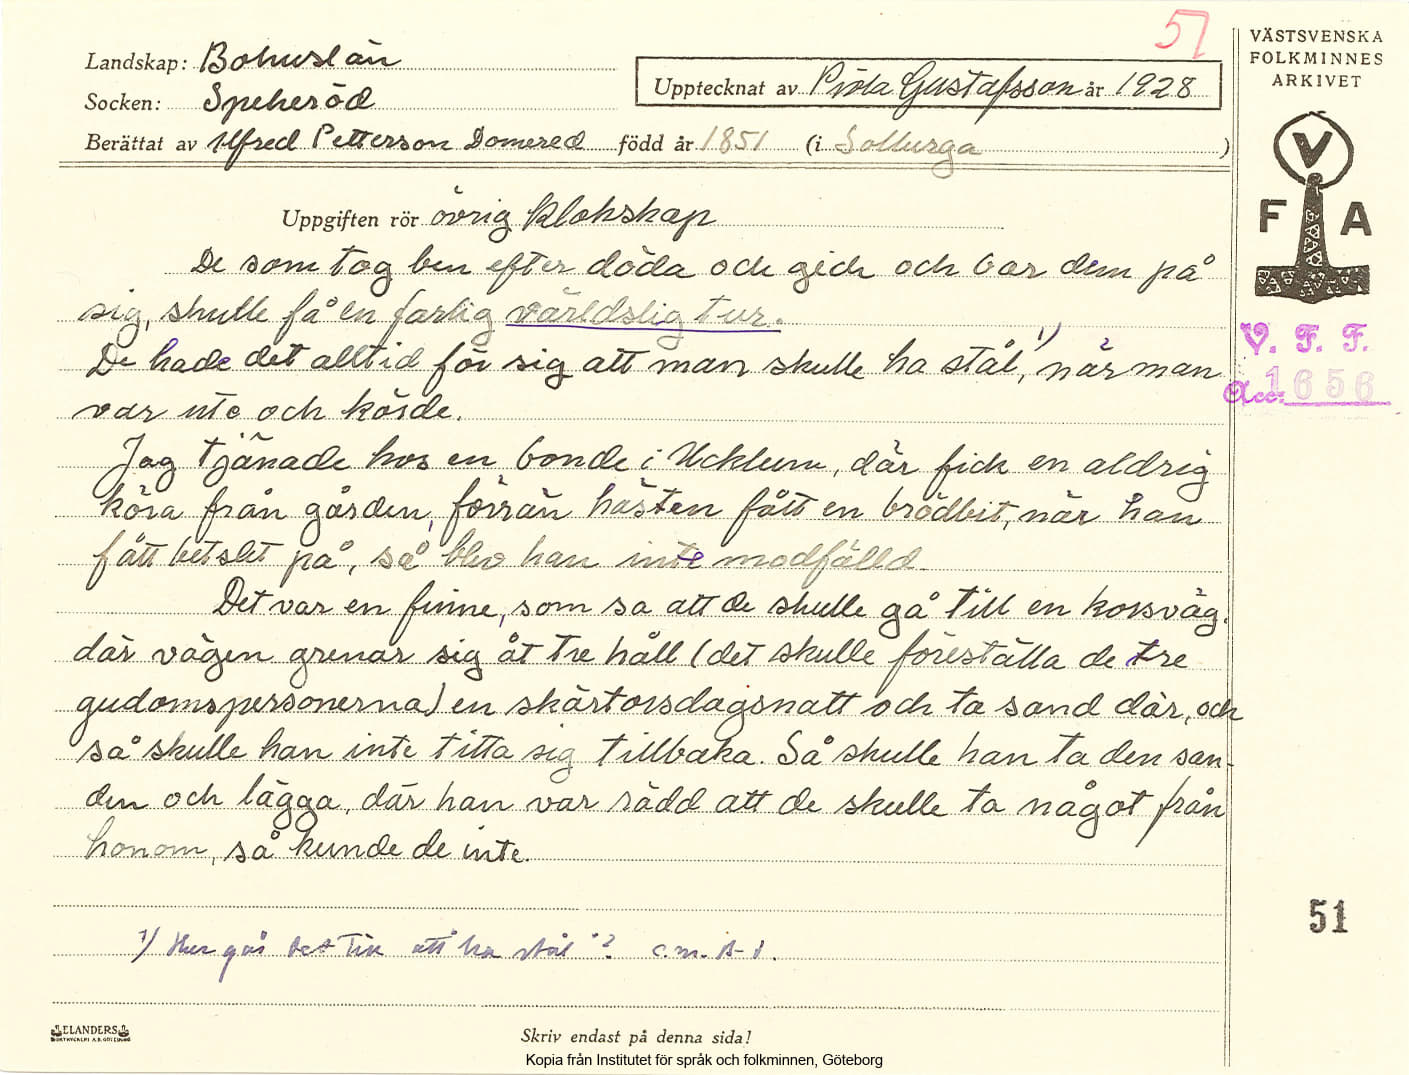 57
VÄSTSVENSKA
FOLKMINNES
ARKIVET
Landskap: Bohuslän
Upptecknat av Viola Gustafsson år 1928
Socken: Spekeröd
Berättat av Alfred Petterson Domered född år 1851 (i Solberga)
V
F A
Uppgiften rör övrig klokskap
De som tog ben efter döda och gick och bar dem på
sig, skulle få en farlig världslig tur.
De hade det alltid för sig att man skulle ha stål,1) när man
var ute och körde.
Jag tjänade hos en bonde i Ucklum, där fick en aldrig
köra från gården, förrän hästen fått en brödbit, när han
fått betslet på, så blev han inte modfälld.
Det var en finne, som sa att de skulle gå till en korsväg,
där vägen grenar sig åt tre håll (det skulle föreställa de tre
gudomspersonerna) en skärtorsdagsnatt och ta sand där, och
så skulle han inte titta sig tillbaka. Så skulle han ta den san-
den och lägga, där han var rädd att de skulle ta något från
honom, så kunde de inte.
V. F. F.
Acc: 1656
51
1) Hur går det till att "ha stål"? C.M. B-d.
ELANDERS
BOKTRYCKERI A.B. GÖTEBORG
Skriv endast på denna sida!
Kopia från Institutet för språk och folkminnen, Göteborg